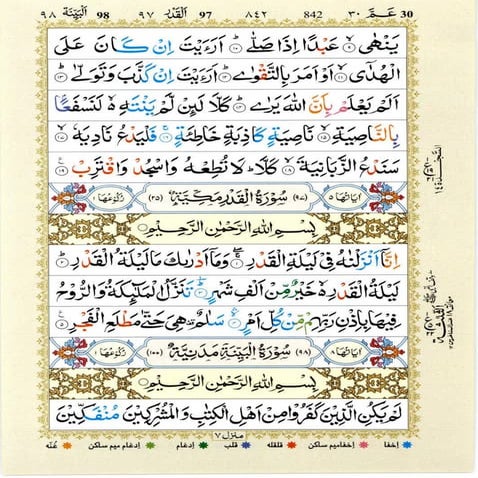 ٩٨ اَلْبَيِّنَة 98 ٩٧ اَلْقَدْر 97 ٨٤٢ 842 عَمَّ ٣٠ 30
يَنْهٰى ۙ﴿۹﴾ عَبْدًا اِذَا صَلّٰى ؕ﴿۱۰﴾ اَرَءَيْتَ اِنْ كَانَ عَلَى
الْهُدٰٓى ۙ﴿۱۱﴾ اَوْ اَمَرَ بِالتَّقْوٰى ؕ﴿۱۲﴾ اَرَءَيْتَ اِنْ كَذَّبَ وَتَوَلّٰى ؕ﴿۱۳﴾
اَلَمْ يَعْلَمْ بِاَنَّ اللّٰهَ يَرٰى ؕ﴿۱۴﴾ كَلَّا لَئِنْ لَّمْ يَنْتَهِ ۙ۬ لَنَسْفَعًۢا
بِالنَّاصِيَةِ ۙ﴿۱۵﴾ نَاصِيَةٍ كَاذِبَةٍ خَاطِئَةٍ ۚ﴿۱۶﴾ فَلْيَدْعُ نَادِيَهٗ ۙ﴿۱۷﴾
سَنَدْعُ الزَّبَانِيَةَ ۙ﴿۱۸﴾ كَلَّا ؕ لَا تُطِعْهُ وَاسْجُدْ وَاقْتَرِبْ ﴿۱۹﴾
اٰيَاتُهَا ٥ (٩٧) سُوْرَةُ الْقَدْرِ مَكِّيَّةٌ (٢٥) رُكُوْعُهَا ١
بِسْمِ اللّٰهِ الرَّحْمٰنِ الرَّحِيْمِ
اِنَّآ اَنْزَلْنٰهُ فِيْ لَيْلَةِ الْقَدْرِ ۚۖ﴿۱﴾ وَمَآ اَدْرٰىكَ مَا لَيْلَةُ الْقَدْرِ ؕ﴿۲﴾
لَيْلَةُ الْقَدْرِ ۙ۬ خَيْرٌ مِّنْ اَلْفِ شَهْرٍ ؕ﴿۳﴾ تَنَزَّلُ الْمَلٰٓئِكَةُ وَالرُّوْحُ
فِيْهَا بِاِذْنِ رَبِّهِمْ ۚ مِّنْ كُلِّ اَمْرٍ ۙ﴿۴﴾ سَلٰمٌ ۛ۟ هِيَ حَتّٰى مَطْلَعِ الْفَجْرِ ﴿۵﴾
اٰيَاتُهَا ٨ (٩٨) سُوْرَةُ الْبَيِّنَةِ مَدَنِيَّةٌ (١٠٠) رُكُوْعُهَا ١
بِسْمِ اللّٰهِ الرَّحْمٰنِ الرَّحِيْمِ
لَمْ يَكُنِ الَّذِيْنَ كَفَرُوْا مِنْ اَهْلِ الْكِتٰبِ وَالْمُشْرِكِيْنَ مُنْفَكِّيْنَ
منزل ٧
اخفا اخفا میم ساکن قلقلہ قلب ادغام ادغام میم ساکن غنّہ
السجدة ١٤